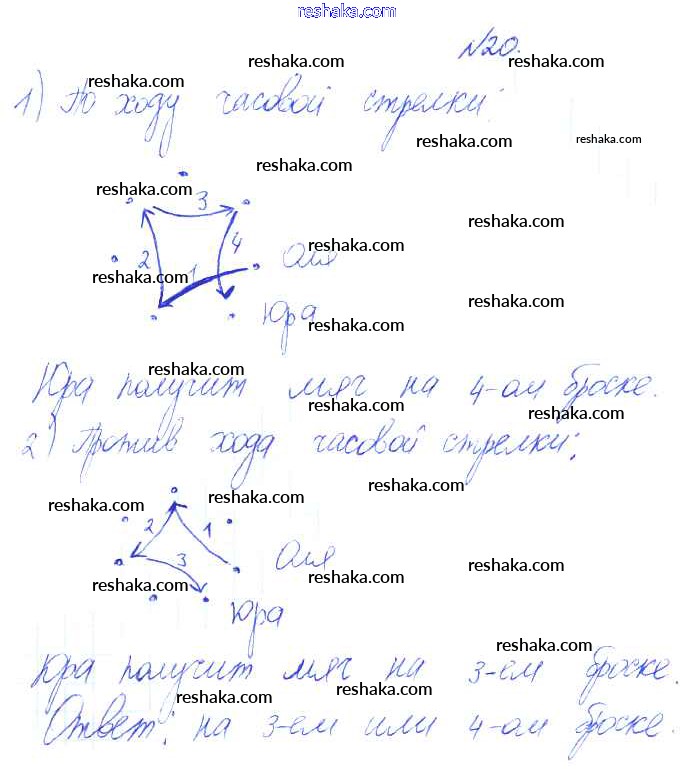 reshaka.com
№20.
reshaka.com
reshaka.com
1) По ходу часовой стрелки:
reshaka.com
reshaka.com
reshaka.com
reshaka.com
3
reshaka.com
reshaka.com
4
2 1 Оля
reshaka.com
reshaka.com
Юра
reshaka.com
reshaka.com
Юра получит мяч на 4-ом броске.
reshaka.com
reshaka.com
2) Против хода часовой стрелки:
reshaka.com
reshaka.com
reshaka.com
2 1
3 Оля
reshaka.com
reshaka.com
reshaka.com
Юра
reshaka.com
Юра получит мяч на 3-ем броске.
reshaka.com
reshaka.com
Ответ: на 3-ем или 4-ом броске.
reshaka.com